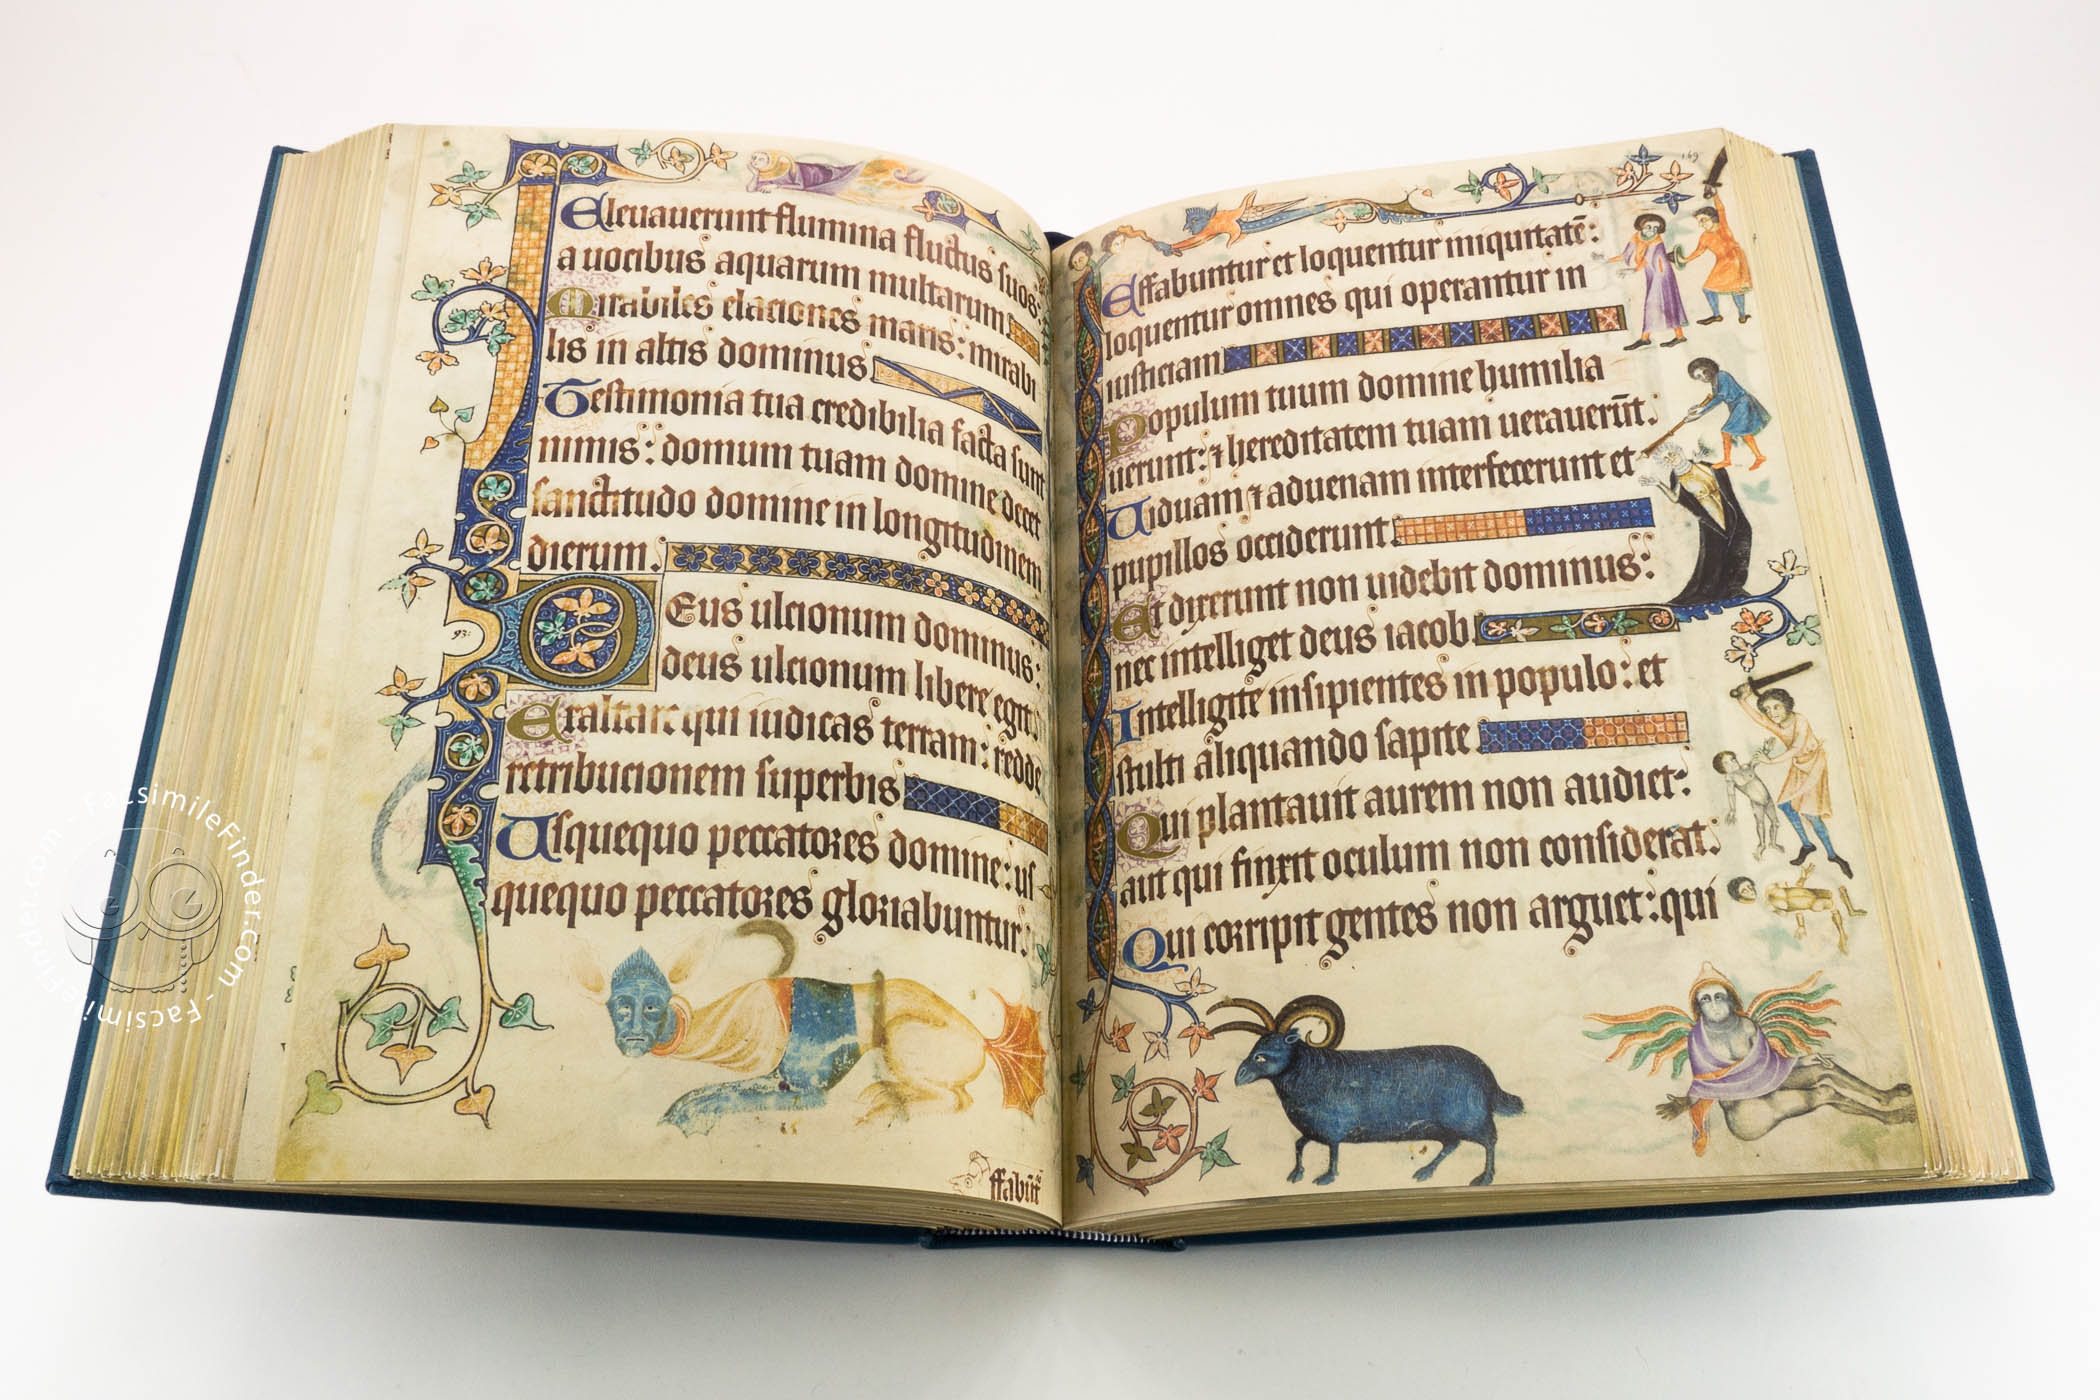 Eleuauerunt flumina fluctus suos:
a uocibus aquarum multarum.
Mirabiles elaciones maris: mirabi
lis in altis dominus
Testimonia tua credibilia facta sunt
nimis: domum tuam domine decet
sanctitudo domine in longitudinem
dierum.
93:
Deus ulcionum dominus:
deus ulcionum libere egit.
Exaltare qui iudicas terram: redde
retribucionem superbis
Usquequo peccatores domine: us
quequo peccatores gloriabuntur.
ffabūt
169
Effabuntur et loquentur iniquitatē:
loquentur omnes qui operantur in
iusticiam
Populum tuum domine humilia
uerunt: ⁊ hereditatem tuam uexauerūt.
Uiduam ⁊ aduenam interfecerunt et
pupillos occiderunt.
Et dixerunt non uidebit dominus:
nec intelliget deus iacob.
Intelligite insipientes in populo: et
stulti aliquando sapite
Qui plantauit aurem non audiet:
aut qui finxit oculum non considerat.
Qui corripit gentes non arguet: qui
FacsimileFinder.com - FacsimileFinder.com -